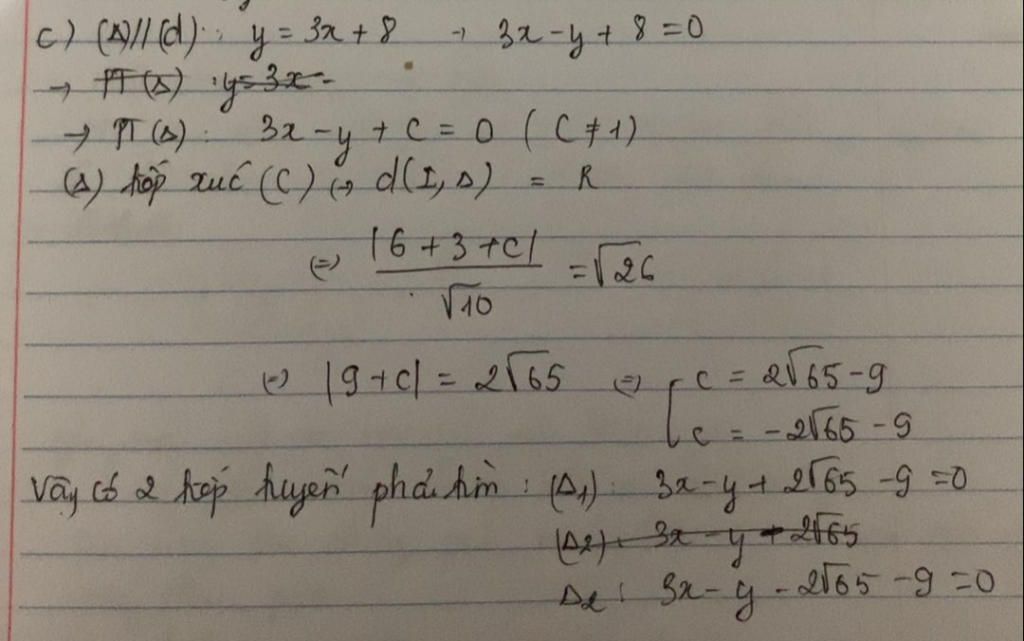 c) (Δ)//(d): y = 3x + 8 → 3x - y + 8 = 0
→ PT (Δ) : y = 3x -
→ PT (Δ): 3x - y + C = 0 ( C ≠ 1)
(Δ) tiếp xúc (C) ⇔ d(I, Δ) = R
⇔ |6 + 3 + c| / √10 = √26
⇔ |9 + c| = 2√65 ⇔ [ c = 2√65 - 9
c = -2√65 - 9
Vậy có 2 tiếp tuyến phải tìm : (Δ1): 3x - y + 2√65 - 9 = 0
(Δ2): 3x - y + 2√65
Δ2 : 3x - y - 2√65 - 9 = 0